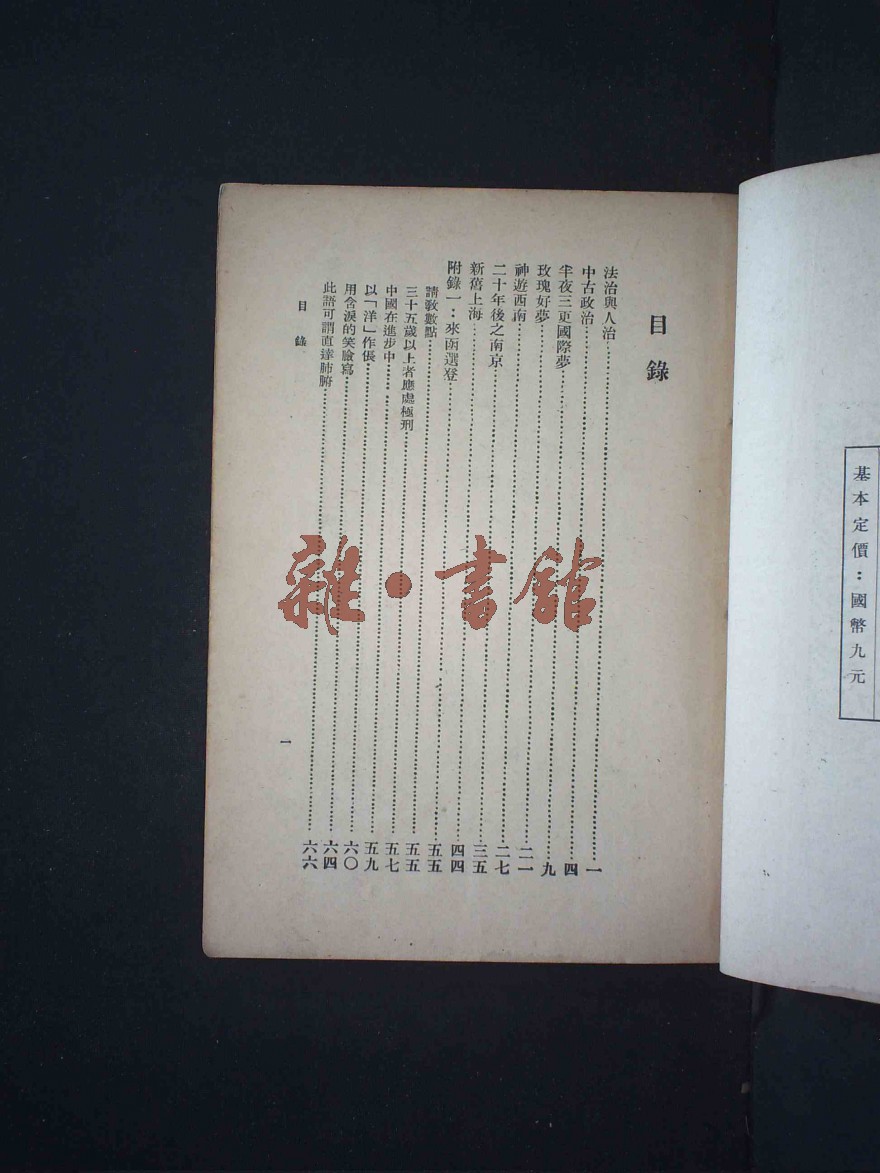 基本定價：國幣九元
目錄
法治與人治……一
中古政治……四
半夜三更國際夢……九
玫瑰好夢……二一
神遊西南……二七
二十年後之南京……三五
新舊上海……四四
附錄一：來函選登……五五
請敎數點……五五
三十五歲以上者應處極刑……五七
中國在進步中……五九
以「洋」作倀……六〇
用含淚的笑臉寫……六四
此語可謂直達肺腑……六六
目錄
一
雜·書館